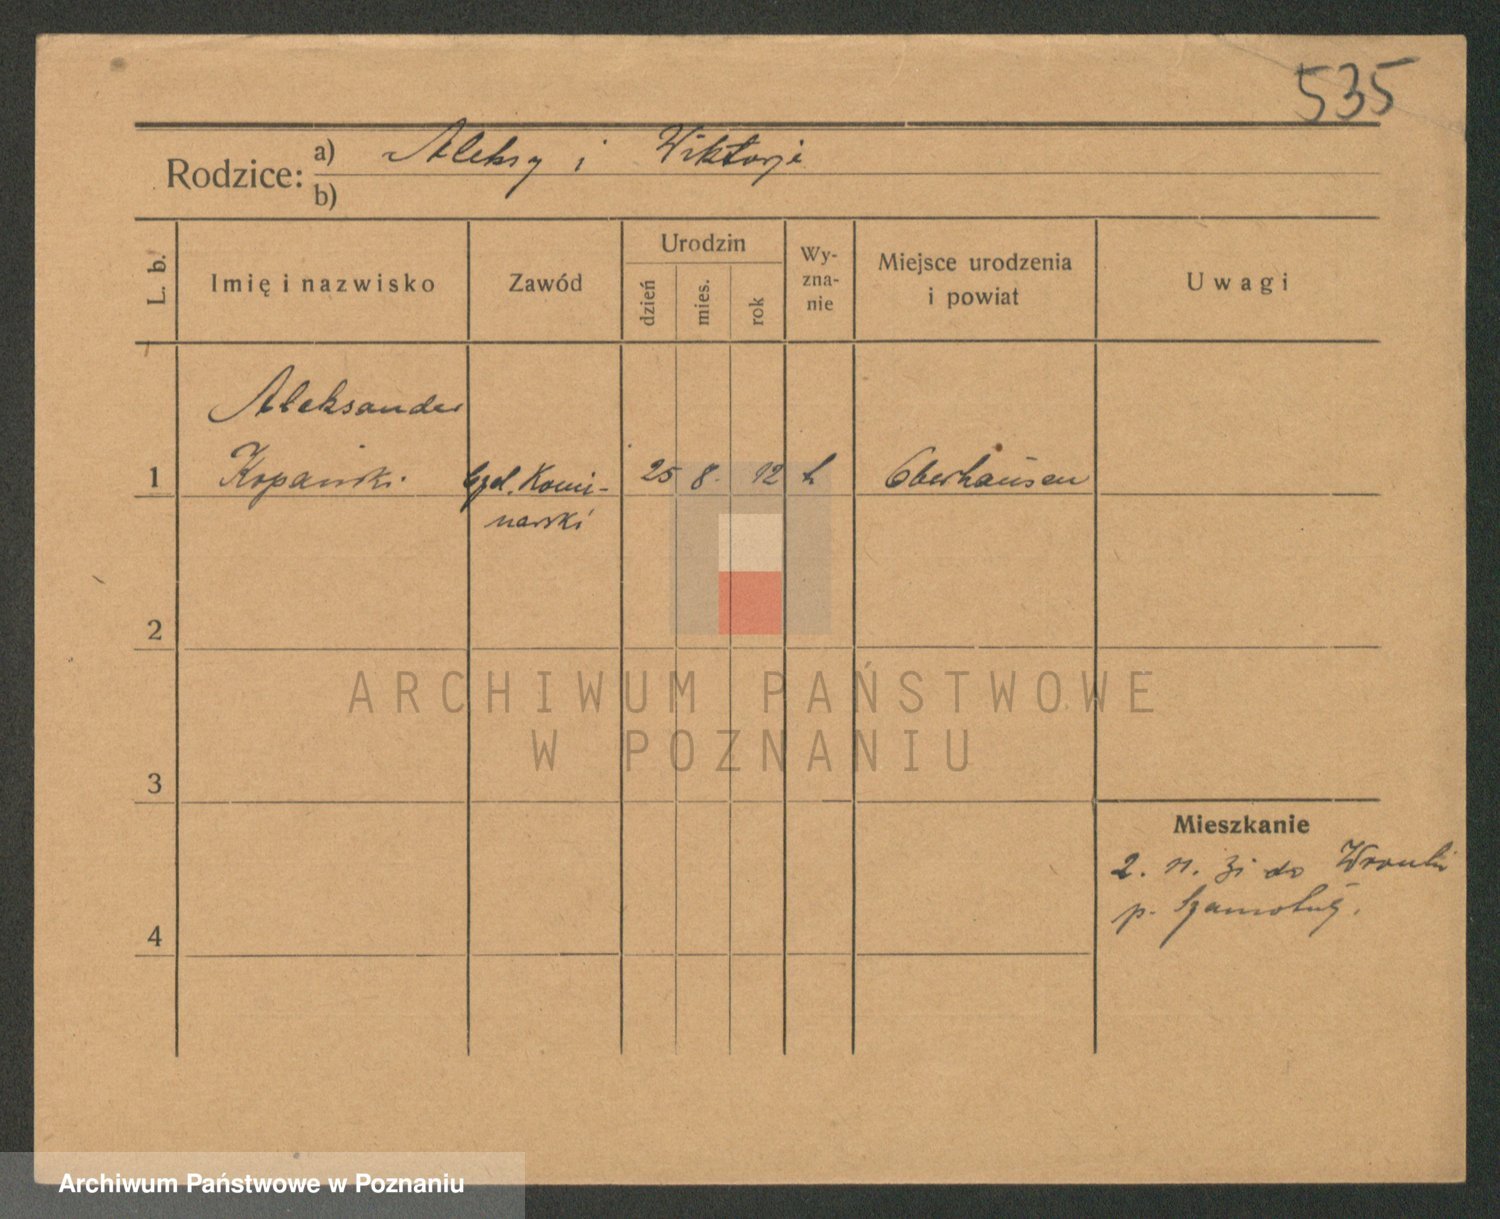 535
Rodzice: a) Aleksy i Wiktorji
b)
L. b.
Imię i nazwisko
Zawód
Urodzin
dzień
mies.
rok
Wy-
zna-
nie
Miejsce urodzenia
i powiat
Uwagi
Aleksander
1 Kopański Czel. Komi- 25 8. 12 Oberhausen
narski
2
ARCHIWUM PAŃSTWOWE
W POZNANIU
3
Mieszkanie
2. n. do Wronki
p. Szamotuły.
4
Archiwum Państwowe w Poznaniu